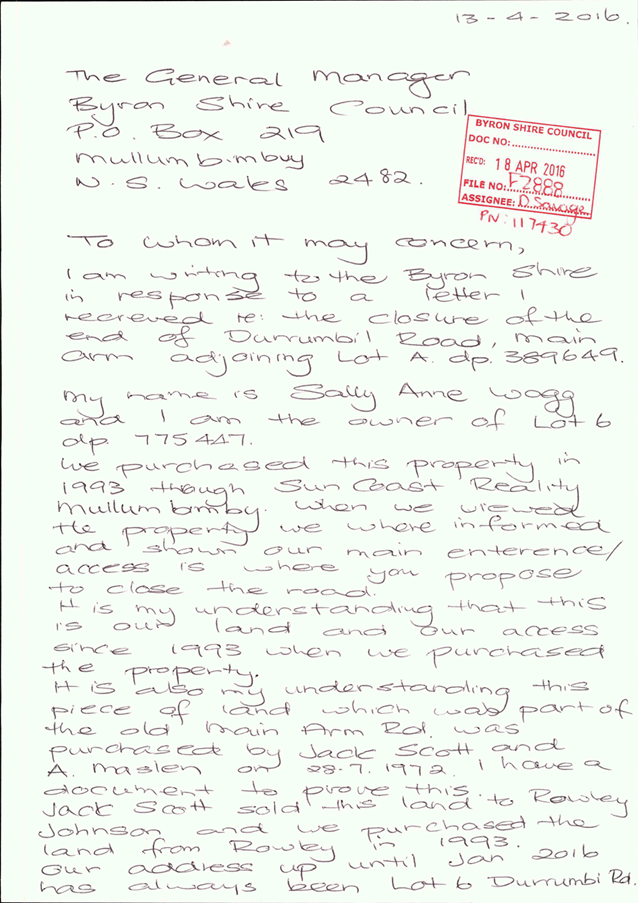 13-4-2016.
The General Manager
Byron Shire Council
P.O. Box 219
Mullumbimbuy
N.S. Wales 2482.
BYRON SHIRE COUNCIL
DOC NO:
REC'D: 18 APR 2016
FILE NO: F2888
ASSIGNEE: D Savage
PN: 117430
To whom it may concern,
I am writing to the Byron Shire
in response to a letter I
recreved re: the closure of the
end of Durrumbil Road, main
arm adjoining Lot A. dp. 389649.
My name is Sally Anne Wogg
and I am the owner of Lot 6
dp 775447.
We purchased this property in
1993 though Sun Coast Reality
Mullumbimby. When we viewed
the property we where informed
and shown our main enterence/
access is where you propose
to close the road.
It is my understanding that this
is our land and our access
since 1993 when we purchased
the property.
It is also my understanding this
piece of land which was part of
the old Main Arm Rd. was
purchased by Jack Scott and
A. Maslen on 28.7.1972. I have a
document to prove this.
Jack Scott sold this land to Rowley
Johnson and we purchased the
land from Rowley in 1993.
Our address up until Jan 2016
has always been Lot 6 Durrumbi Rd.